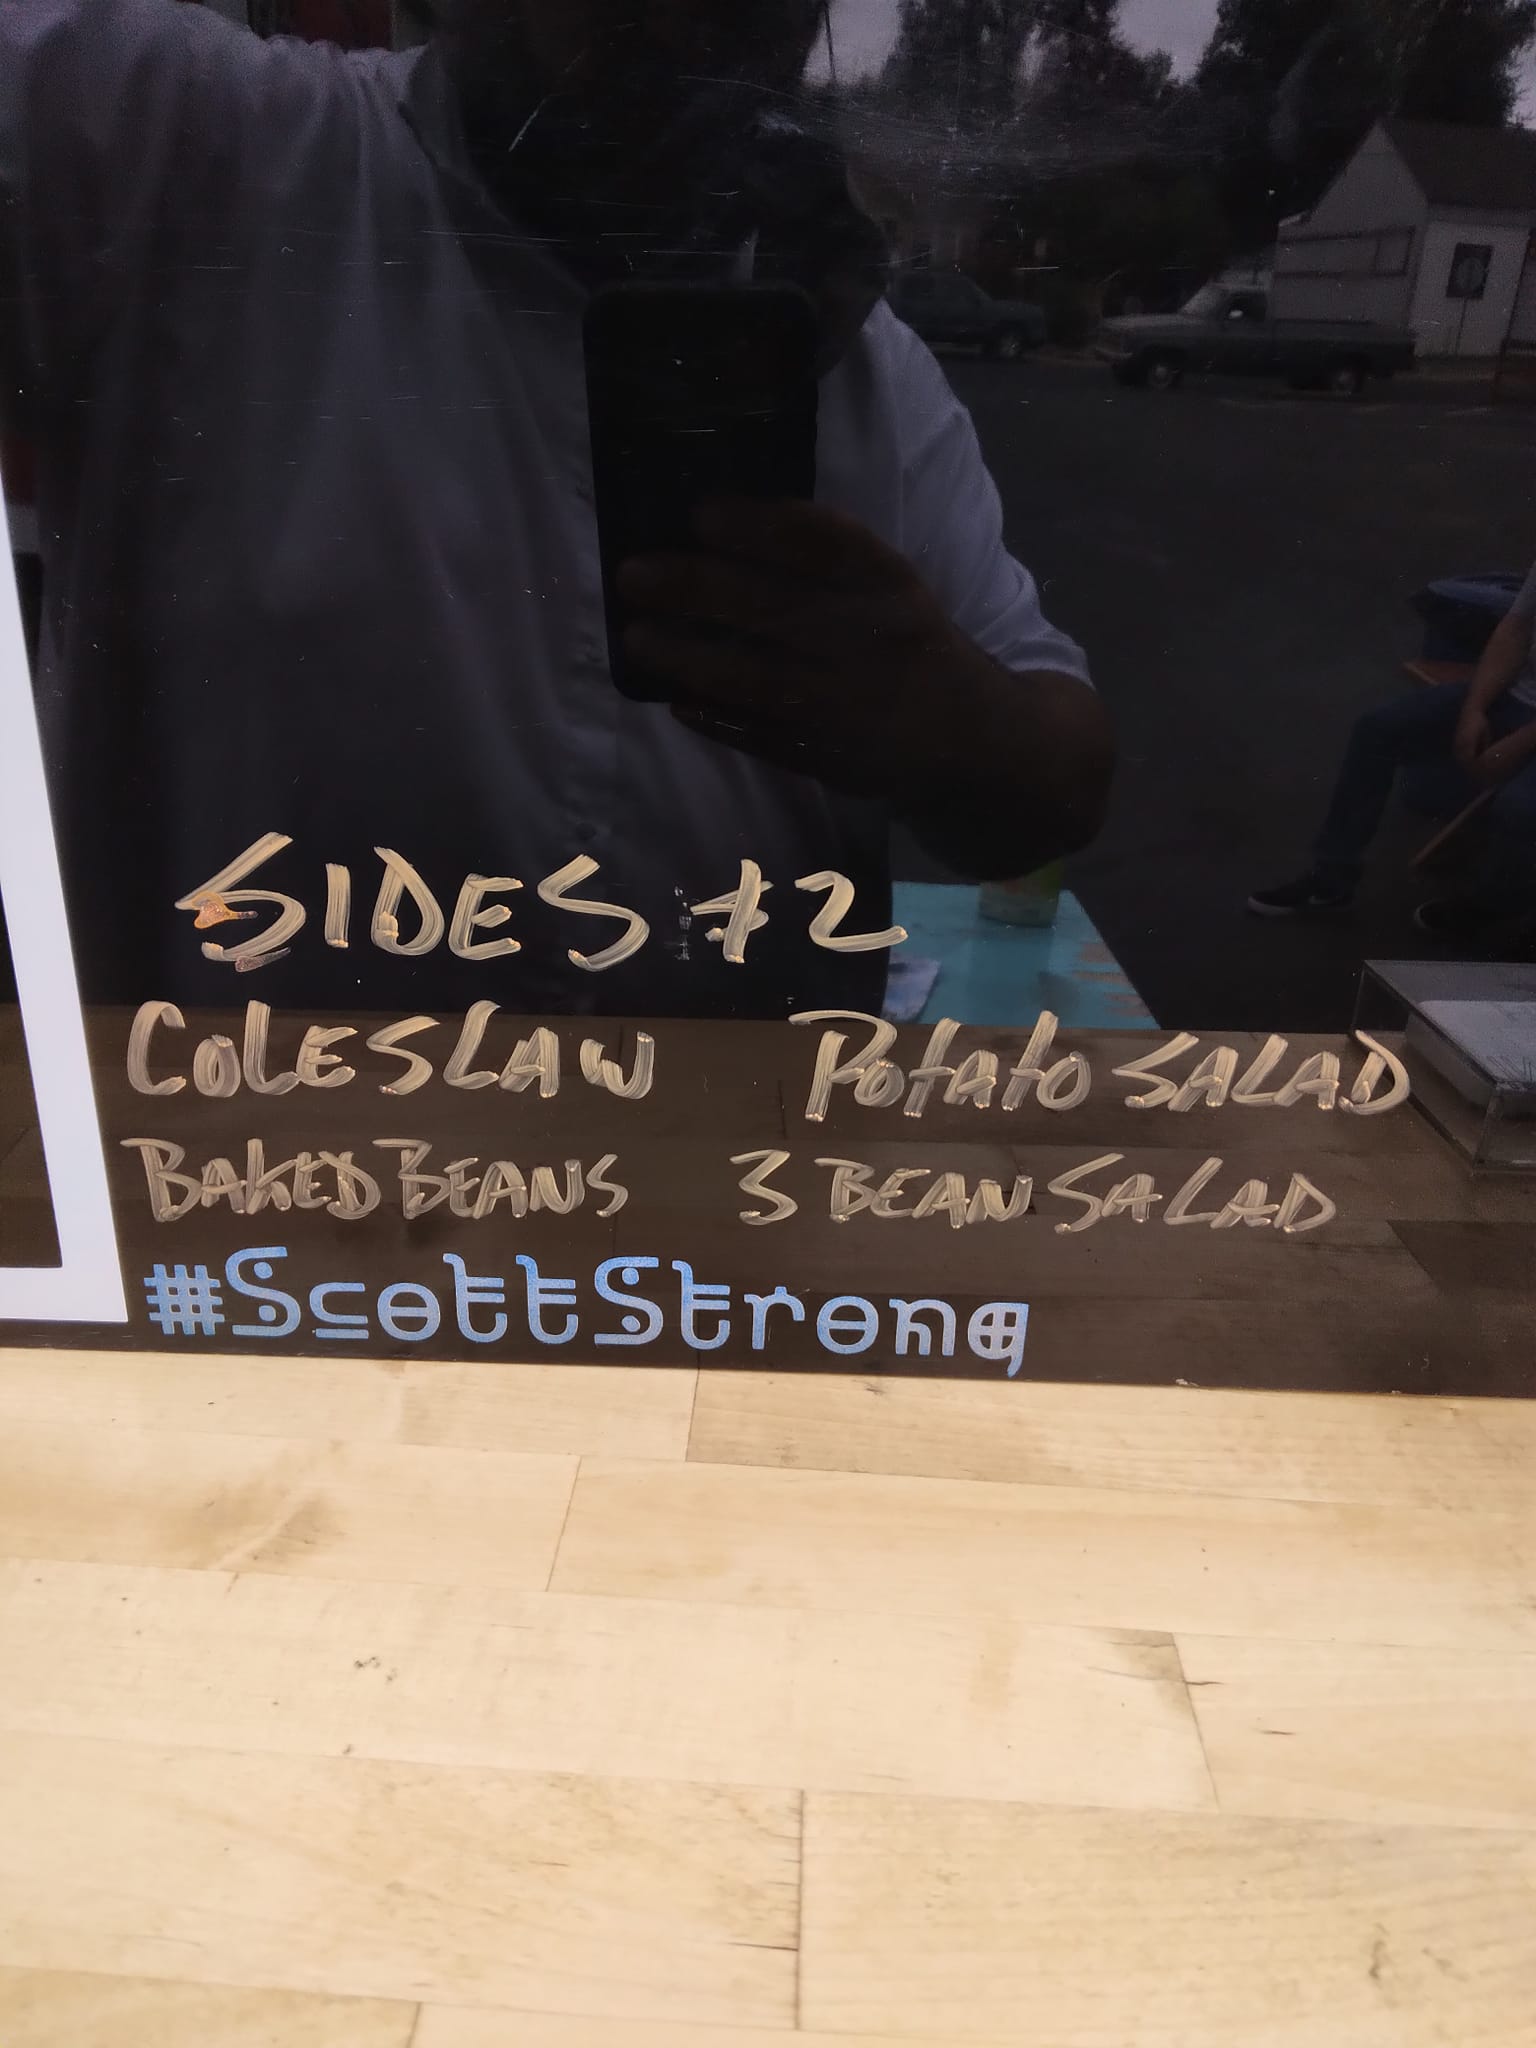 SIDES $2
COLESLAW POTATO SALAD
BAKED BEANS 3 BEAN SALAD
#ScottStrong